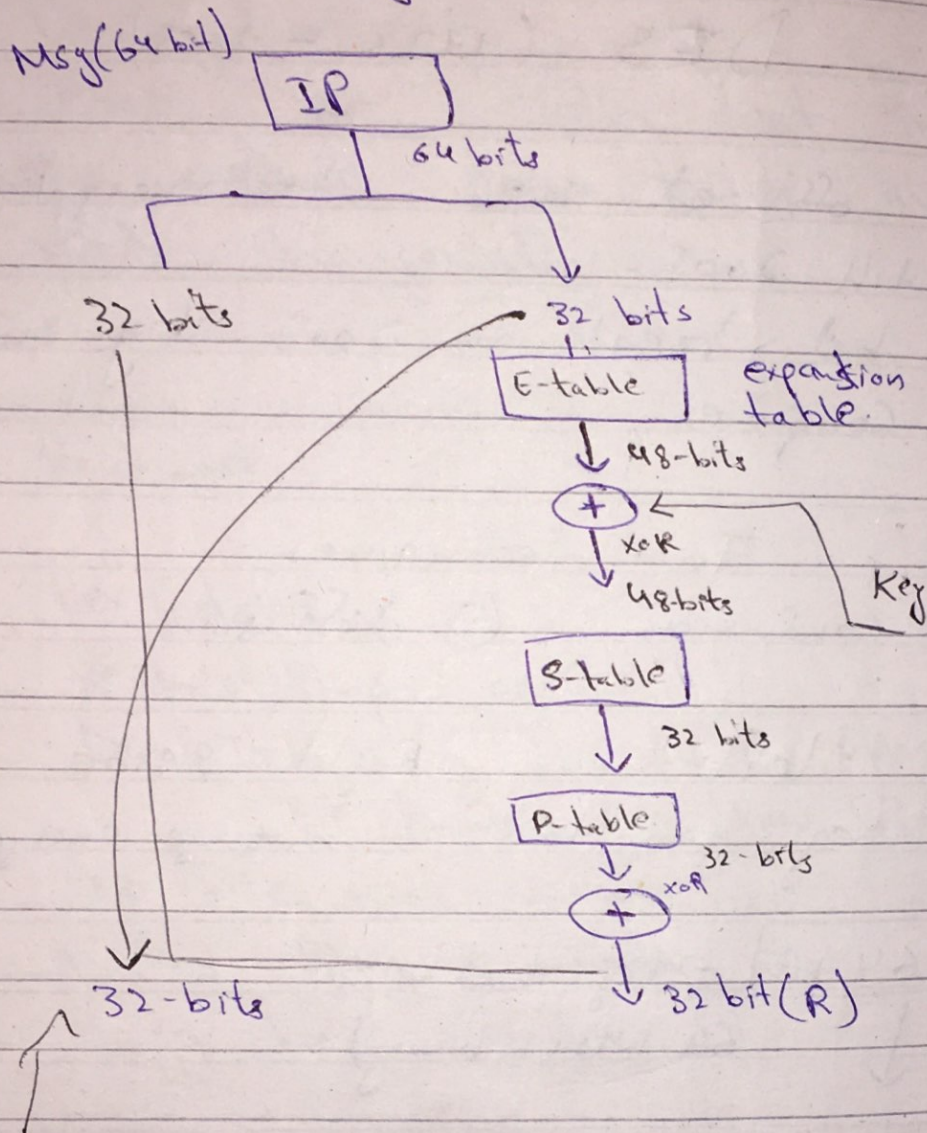 Msg(64 bit)
IP
64 bits
32 bits
32 bits
E-table
expansion
table.
48-bits
+
XOR
48-bits
Key
S-table
32 bits
P-table
32-bits
XOR
+
32-bits
32 bit(R)